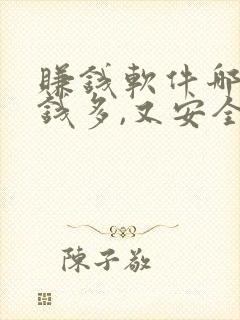 賺錢軟件哪
錢多,又安全
陳子敬